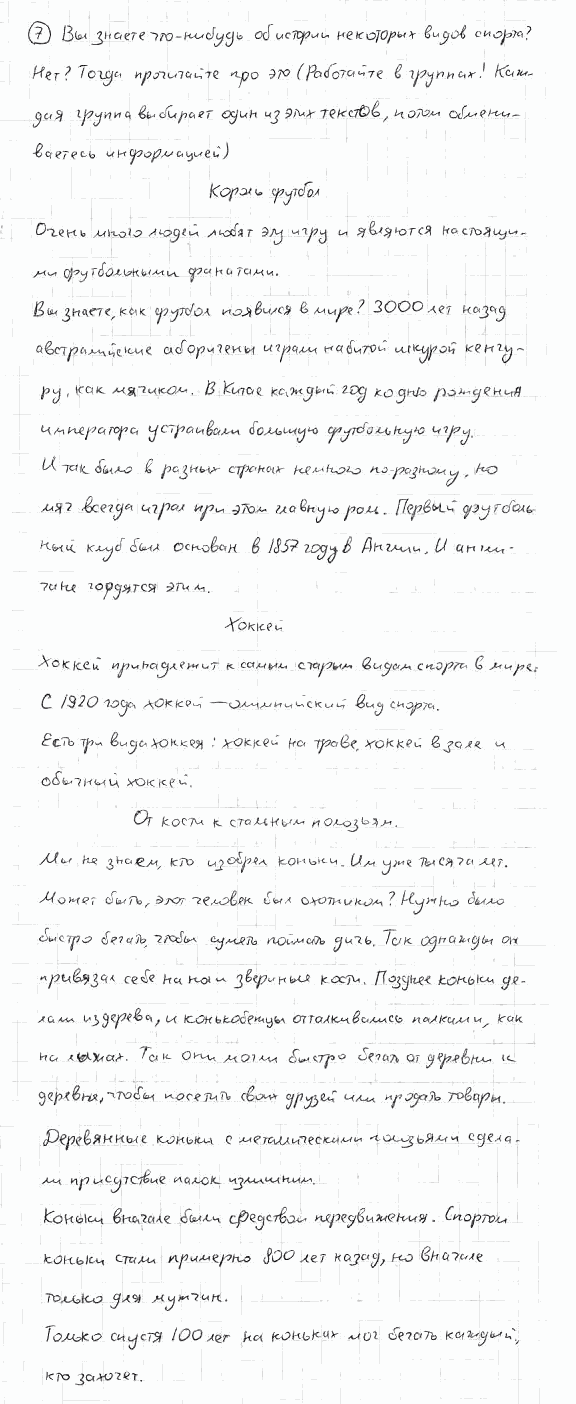 ⑦ Вы знаете что-нибудь об истории некоторых видов спорта?
Нет? Тогда прочитайте про это (Работайте в группах! Каж-
дая группа выбирает один из этих текстов, потом обмени-
ваетесь информацией)
Король футбол
Очень много людей любят эту игру и являются настоящи-
ми футбольными фанатами.
Вы знаете, как футбол появился в мире? 3000 лет назад
австралийские аборигены играли набитой шкурой кенгу-
ру, как мячиком. В Китае каждый год ко дню рождения
императора устраивали большую футбольную игру.
И так было в разных странах немного по-разному, но
мяч всегда играл при этом главную роль. Первый футболь
ный клуб был основан в 1857 году в Англии. И англи-
чане гордятся этим.
Хоккей
Хоккей принадлежит к самым старым видам спорта в мире.
С 1920 года хоккей — олимпийский вид спорта.
Есть три вида хоккея: хоккей на траве, хоккей в зале и
обычный хоккей.
От кости к стальным полозьям.
Мы не знаем, кто изобрел коньки. Им уже тысяча лет.
Может быть, этот человек был охотником? Нужно было
быстро бегать, чтобы суметь поймать дичь. Так однажды он
привязал себе на ноги звериные кости. Позднее коньки де-
лали из дерева, и конькобежцы отталкивались палками, как
на лыжах. Так они могли быстро бегать от деревни к
деревне, чтобы посетить своих друзей или продать товары.
Деревянные коньки с металлическими лозьями сдела-
ли присутствие палок излишним.
Коньки вначале были средством передвижения. Спортом
коньки стали примерно 800 лет назад, но вначале
только для мужчин.
Только спустя 100 лет на коньках мог бегать каждый,
кто захочет.